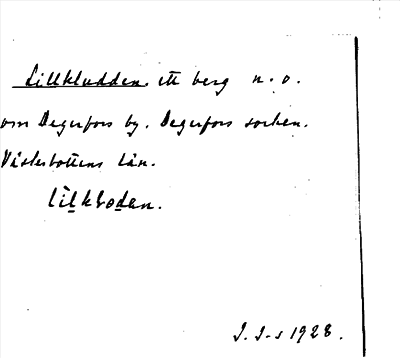 Lillkludden, ett berg n.o.
om Degerfors by. Degerfors socken.
Västerbottens län.
J. J-s 1928.